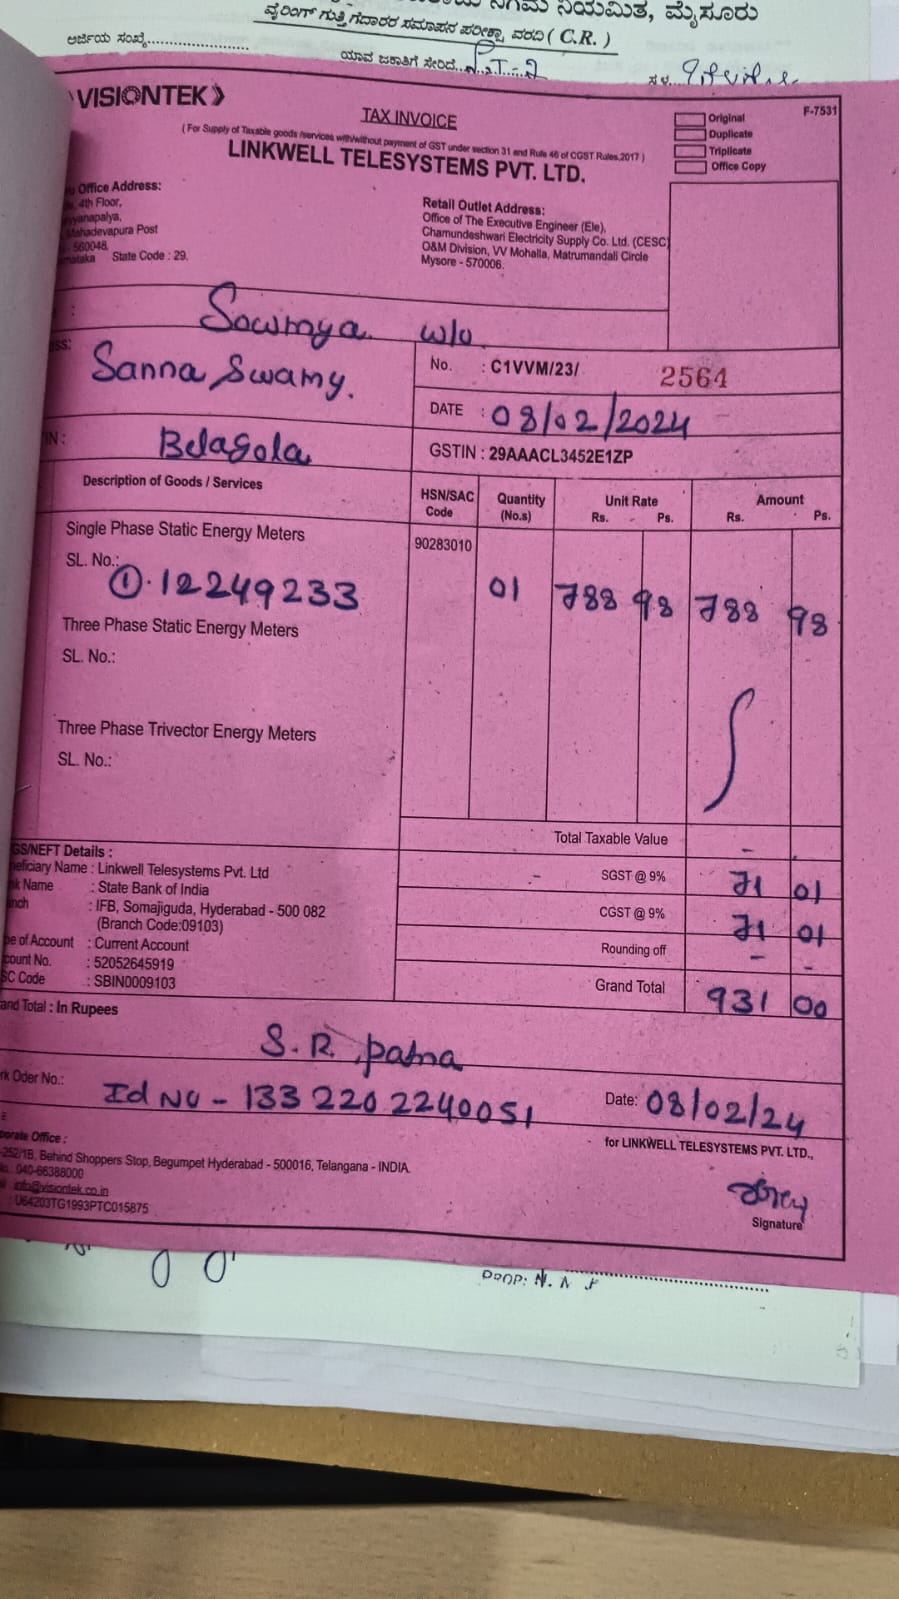 ನಿಗಮ ನಿಯಮಿತ, ಮೈಸೂರು
ವೈರಿಂಗ್ ಗುತ್ತಿಗೆದಾರರ ಸಮಾಪನ ಪರೀಕ್ಷಾ ವರದಿ ( C.R. )
ಅರ್ಜಿಯ ಸಂಖ್ಯೆ
ಯಾವ ಜಕಾತಿಗೆ ಸೇರಿದೆ
VISIONTEK
TAX INVOICE
( For Supply of Taxable goods /services with/without payment of GST under section 31 and Rule 46 of CGST Rules,2017 )
LINKWELL TELESYSTEMS PVT. LTD.
F-7531
Original
Duplicate
Triplicate
Office Copy
Office Address:
4th Floor,
Mahadevapura Post
- 560048,
State Code : 29.
Retail Outlet Address:
Office of The Executive Engineer (Ele),
Chamundeshwari Electricity Supply Co. Ltd. (CESC)
O&M Division, VV Mohalla, Matrumandali Circle
Mysore - 570006.
: Sowmya w/o
Sanna Swamy.
No. : C1VVM/23/ 2564
DATE : 08/02/2024
Belagola
GSTIN : 29AAACL3452E1ZP
Description of Goods / Services HSN/SAC Code Quantity (No.s) Unit Rate Rs. Ps. Amount Rs. Ps.
Single Phase Static Energy Meters 90283010
SL. No.:
①. 12249233 01 788 98 788 98
Three Phase Static Energy Meters
SL. No.:
Three Phase Trivector Energy Meters
SL. No.:
Total Taxable Value -
SGST @ 9% 71 01
CGST @ 9% 71 01
Rounding off - -
Grand Total 931 00
GS/NEFT Details :
eficiary Name : Linkwell Telesystems Pvt. Ltd
nk Name : State Bank of India
nch : IFB, Somajiguda, Hyderabad - 500 082
(Branch Code:09103)
pe of Account : Current Account
count No. : 52052645919
SC Code : SBIN0009103
and Total : In Rupees
S. R. patna
rk Oder No.:
Id No - 133 220 2240051
Date: 08/02/24
for LINKWELL TELESYSTEMS PVT. LTD.,
porate Office :
-252/1B, Behind Shoppers Stop, Begumpet Hyderabad - 500016, Telangana - INDIA.
040-66388000
info@visiontek.co.in
: U64203TG1993PTC015875
Signature
PROP: N.